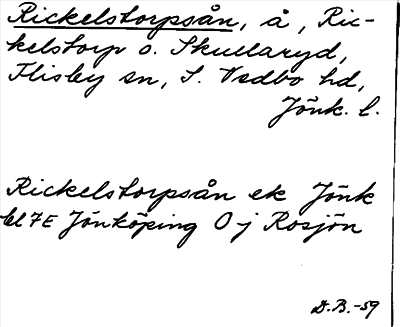 Rickelstorpsån, å, Ric-
kelstorp o. Skullaryd,
Flisby sn, S. Vedbo hd,
Jönk. l.
Rickelstorpsån ek Jönk
bl 7E Jönköping O j Rosjön
D.B. -59